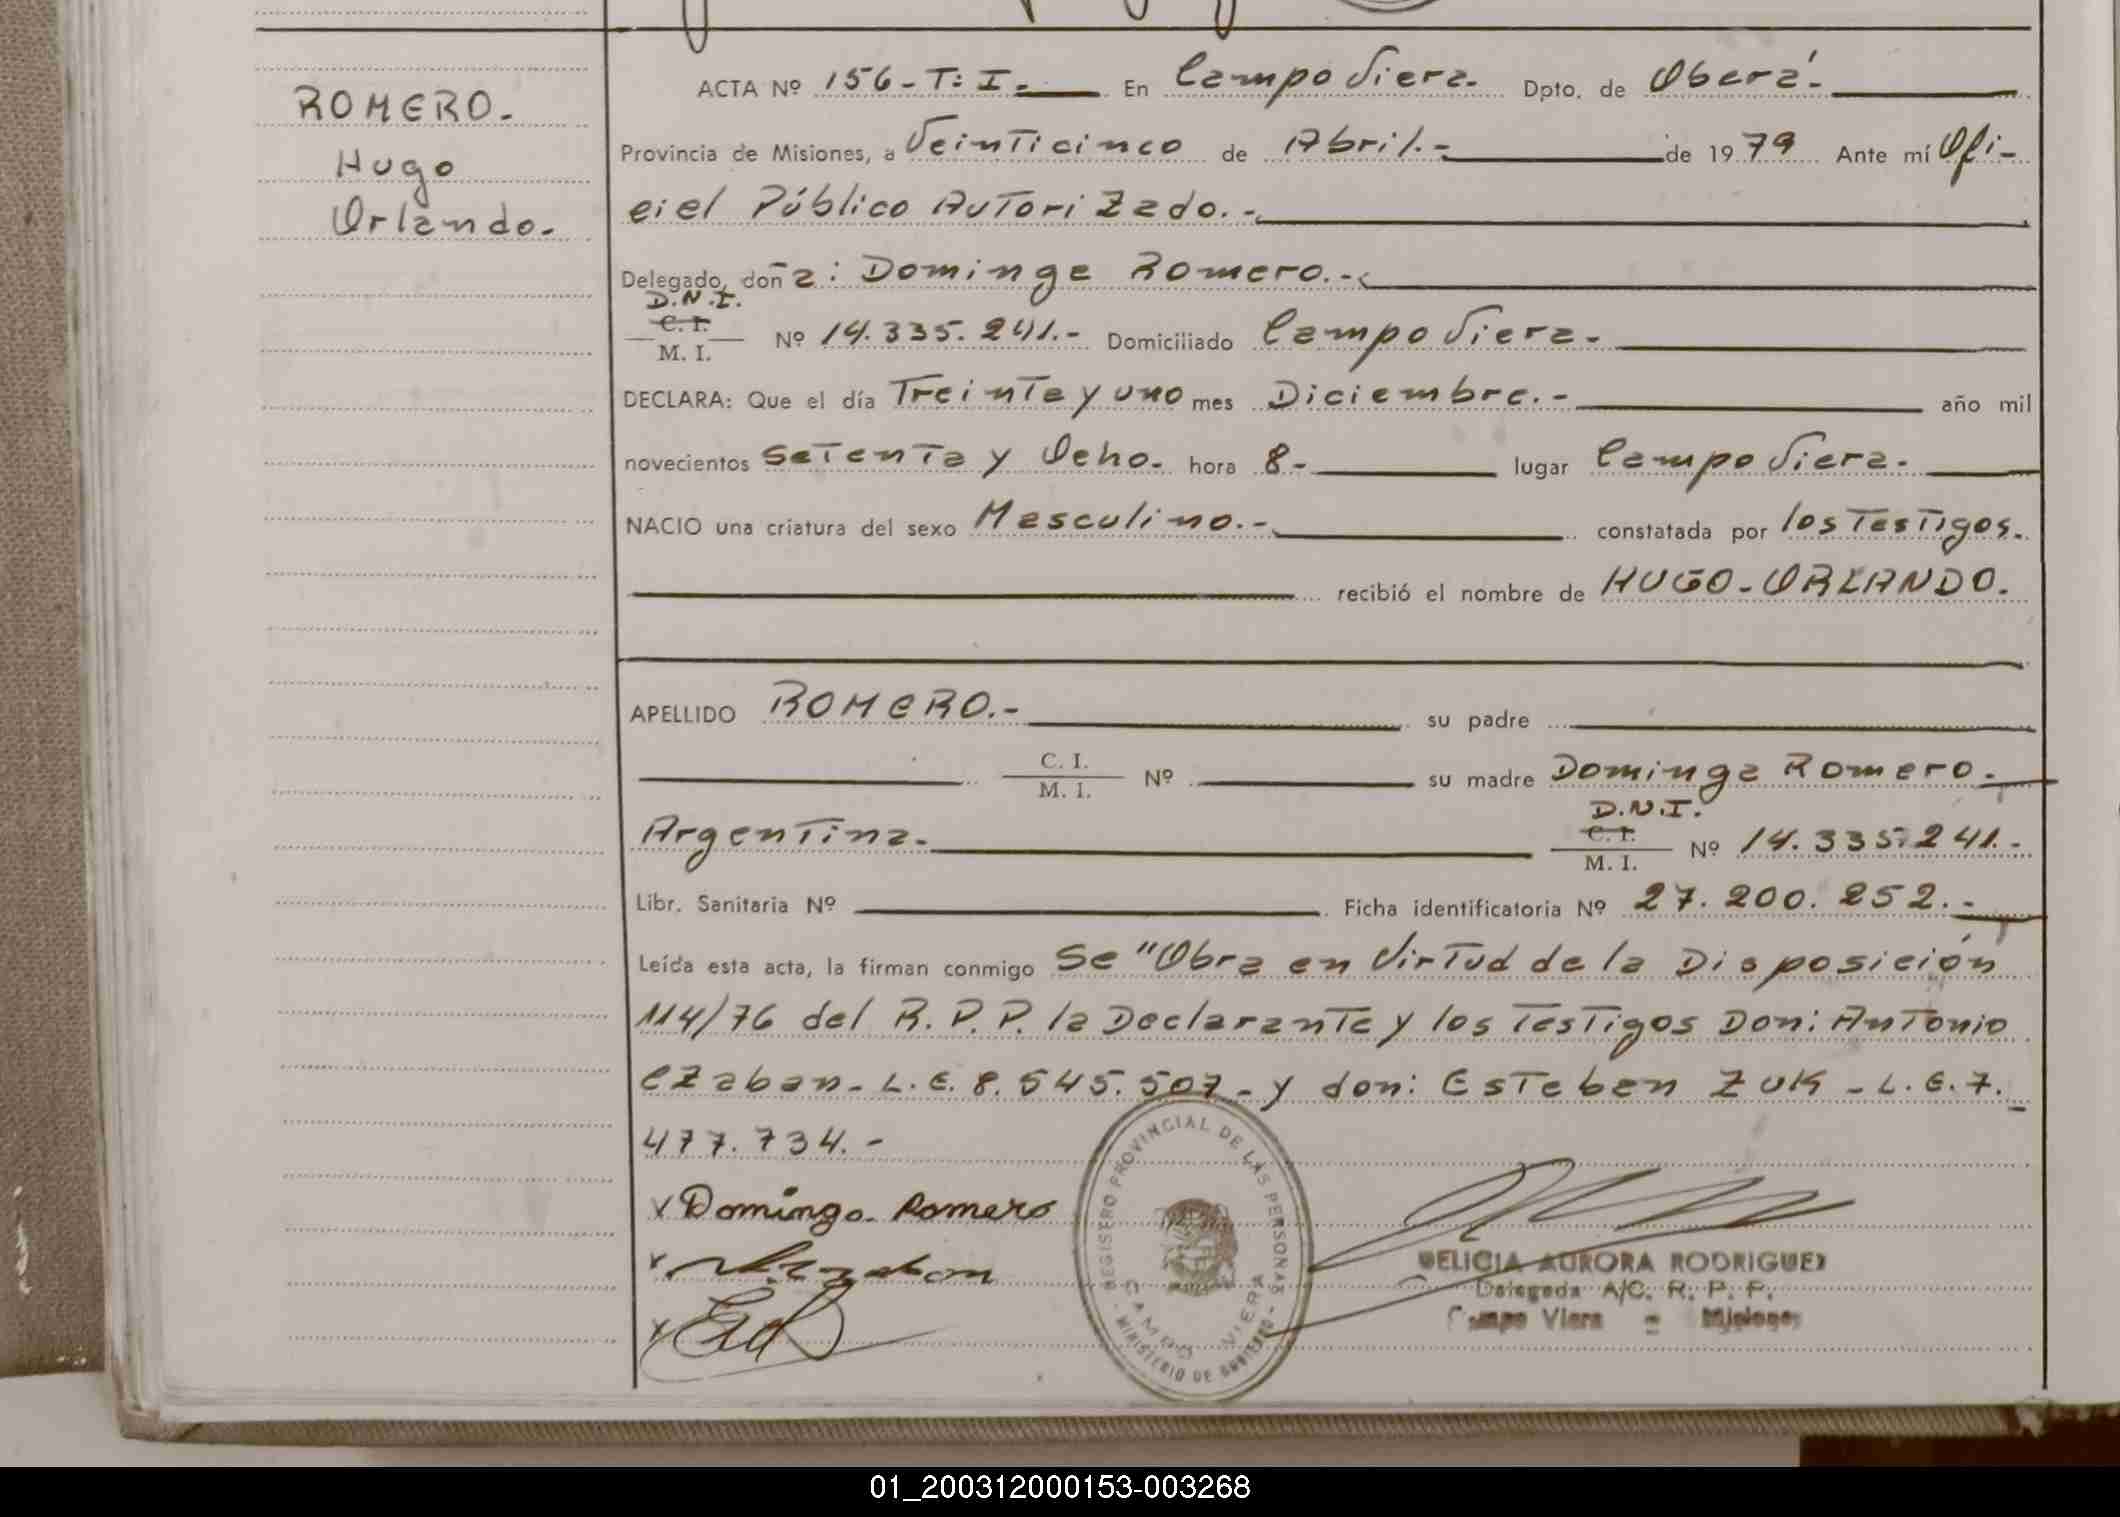 ROMERO.
Hugo
Orlando.
ACTA Nº 156-T:I.- En Campo Viera. Dpto. de Oberá.-
Provincia de Misiones, a Veinticinco de Abril.- de 19 79 Ante mí Ofi-
cial Público Autorizado.-
Delegado, don a: Dominga Romero.-
D.N.I.
C. I.
M. I. Nº 14.335.241.- Domiciliado Campo Viera.-
DECLARA: Que el día Treinta y uno mes Diciembre.- año mil
novecientos Setenta y Ocho. hora 8.- lugar Campo Viera.-
NACIO una criatura del sexo Masculino.- constatada por los Testigos.
recibió el nombre de HUGO-ORLANDO.
APELLIDO ROMERO.- su padre
C. I.
M. I. Nº su madre Dominga Romero.-
Argentina.-
D.N.I.
C. I.
M. I. Nº 14.335.241.-
Libr. Sanitaria Nº Ficha identificatoria Nº 27.200.252.-
Leída esta acta, la firman conmigo Se "Obra en Virtud de la Disposición
114/76 del R.P.P. la Declarante y los Testigos Don: Antonio
Czaban- L.E. 8.545.507- y don: Esteban Zuk - L.E. 7.
477.734.-
x Dominga Romero
x
x
REGISTRO PROVINCIAL DE LAS PERSONAS
CAMPO VIERA
- MINISTERIO DE GOBIERNO -
DELICIA AURORA RODRIGUEZ
Delegada A/C. R. P. P.
Campo Viera - Misiones
01_200312000153-003268